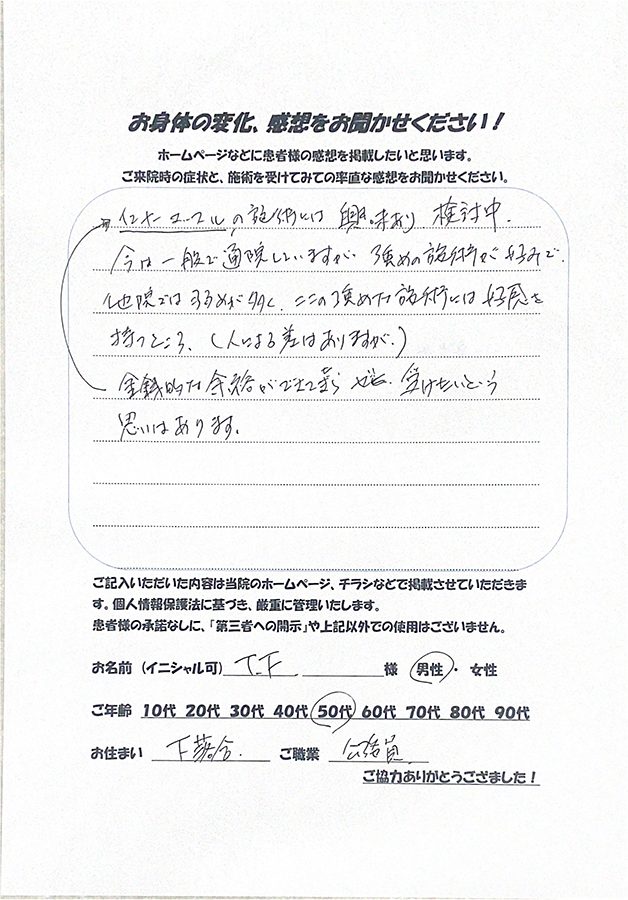 お身体の変化、感想をお聞かせください！
ホームページなどに患者様の感想を掲載したいと思います。
ご来院時の症状と、施術を受けてみての率直な感想をお聞かせください。
の施術には 興味あり 検討中.
今は一般で通院していますが 強めの施術が好みで、
他院では弱めが多く、ここの強めな施術には好感を
持つところ、(人による差はありますが.)
金銭的な余裕ができて 受けたいという
思いはあります。
ご記入いただいた内容は当院のホームページ、チラシなどで掲載させていただきま
す。個人情報保護法に基づき、厳重に管理いたします。
患者様の承諾なしに、「第三者への開示」や上記以外での使用はございません。
お名前（イニシャル可） T.F 様 男性・女性
ご年齢 10代 20代 30代 40代 50代 60代 70代 80代 90代
お住まい ご職業 公務員
ご協力ありがとうござました！